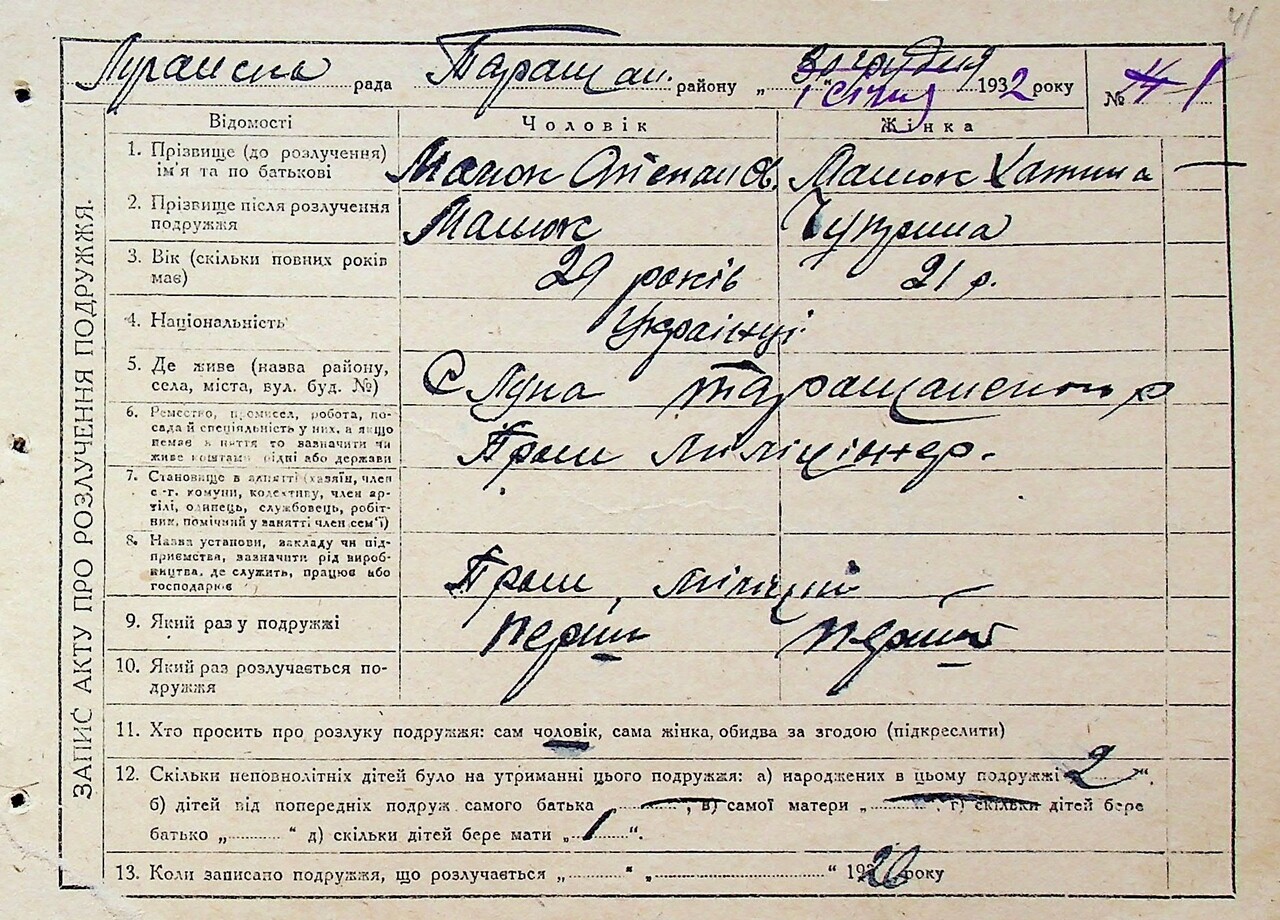 41
Луганська рада Таращан. району „31 грудня 1932 року
1 січня
№ 14 1
ЗАПИС АКТУ ПРО РОЗЛУЧЕННЯ ПОДРУЖЖЯ.
Відомості Чоловік Жінка
1. Прізвище (до розлучення) ім'я та по батькові
Малюк Малюк
2. Прізвище після розлучення подружжя
Малюк Чуприна
3. Вік (скільки повних років має)
29 років 21 р.
4. Національність
Українці
5. Де живе (назва району, села, міста, вул. буд. №)
С Лука Таращанського р
6. Ремество, промисел, робота, посада й спеціяльність у них, а якщо немає заняття то зазначити чи живе коштами рідні або держави
міліціонер.
7. Становище в занятті (хазяїн, член с.-г. комуни, колективу, член артілі, одинець, службовець, робітник, помічний у занятті член сем'ї)
8. Назва установи, закладу чи підприємства, зазначити рід виробництва, де служить, працює або господарює
міліції
9. Який раз у подружжі
перший перший
10. Який раз розлучається подружжя
11. Хто просить про розлуку подружжя: сам чоловік, сама жінка, обидва за згодою (підкреслити)
12. Скільки неповнолітніх дітей було на утриманні цього подружжя: а) народжених в цьому подружжі „2“.
б) дітей від попередніх подруж самого батька „ “, в) самої матери „ “, г) скільки дітей бере
батько „ “ д) скільки дітей бере мати „1“.
13. Коли записано подружжя, що розлучається „ “ „ “ 1926 року